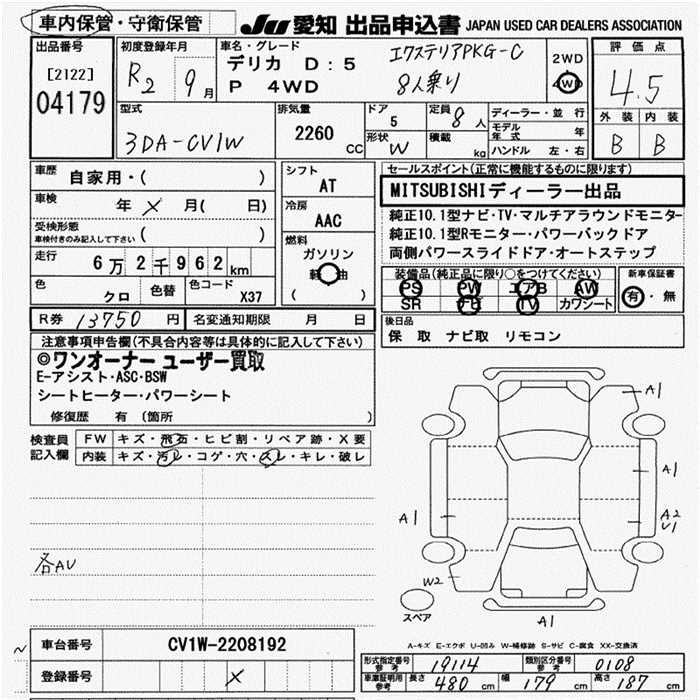 車内保管・守衛保管
JU 愛知 出品申込書 JAPAN USED CAR DEALERS ASSOCIATION
出品番号
[2122]
04179
初度登録年月
R2 9月
車名・グレード
デリカ D:5
P 4WD
エクステリアPKG-C
8人乗り
2WD
4WD
評価点
4.5
外装 内装
B B
型式
3DA-CV1W
排気量
2260 CC
ドア
5
形状
W
定員 8人
積載 kg
ディーラー・並行
モデル年式 年
ハンドル 左・右
車歴
自家用・( )
車検
年 × 月( 日)
受検形態
車検付きのみ記入して下さい ( )
走行
6万2千962km
色
クロ
色替
色コード
X37
シフト
AT
冷房
AAC
燃料
ガソリン
軽油
( )
セールスポイント(正常に機能するものに限ります)
MITSUBISHIディーラー出品
純正10.1型ナビ・TV・マルチアラウンドモニター
純正10.1型Rモニター・パワーバックドア
両側パワースライドドア・オートステップ
装備品(純正品に限り○をつけてください)
PS PW エアB AW
SR ナビ TV カワシート
新車保証書
有・無
後日品
保 取 ナビ取 リモコン
R券 13750円
名変通知期限 月 日
注意事項申告欄(不具合内容等は具体的に記入して下さい)
◎ワンオーナー ユーザー買取
E-アシスト・ASC・BSW
シートヒーター・パワーシート
修復歴 有 (箇所 )
検査員記入欄
FW キズ・飛石・ヒビ割・リペア跡・X要
内装 キズ・汚レ・コゲ・穴・スレ・キレ・破レ
各AU
A1
A1
A1
A2
U1
W2
スペア
A1
A-キズ E-エクボ U-凹み W-補修跡 S-サビ C-腐食 XX-交換済
車台番号 CV1W-2208192
登録番号 ×
形式指定番号 参考 19114
類別区分番号 参考 0108
車庫証明用 参考 長さ 480 cm 幅 179 cm 高さ 187 cm